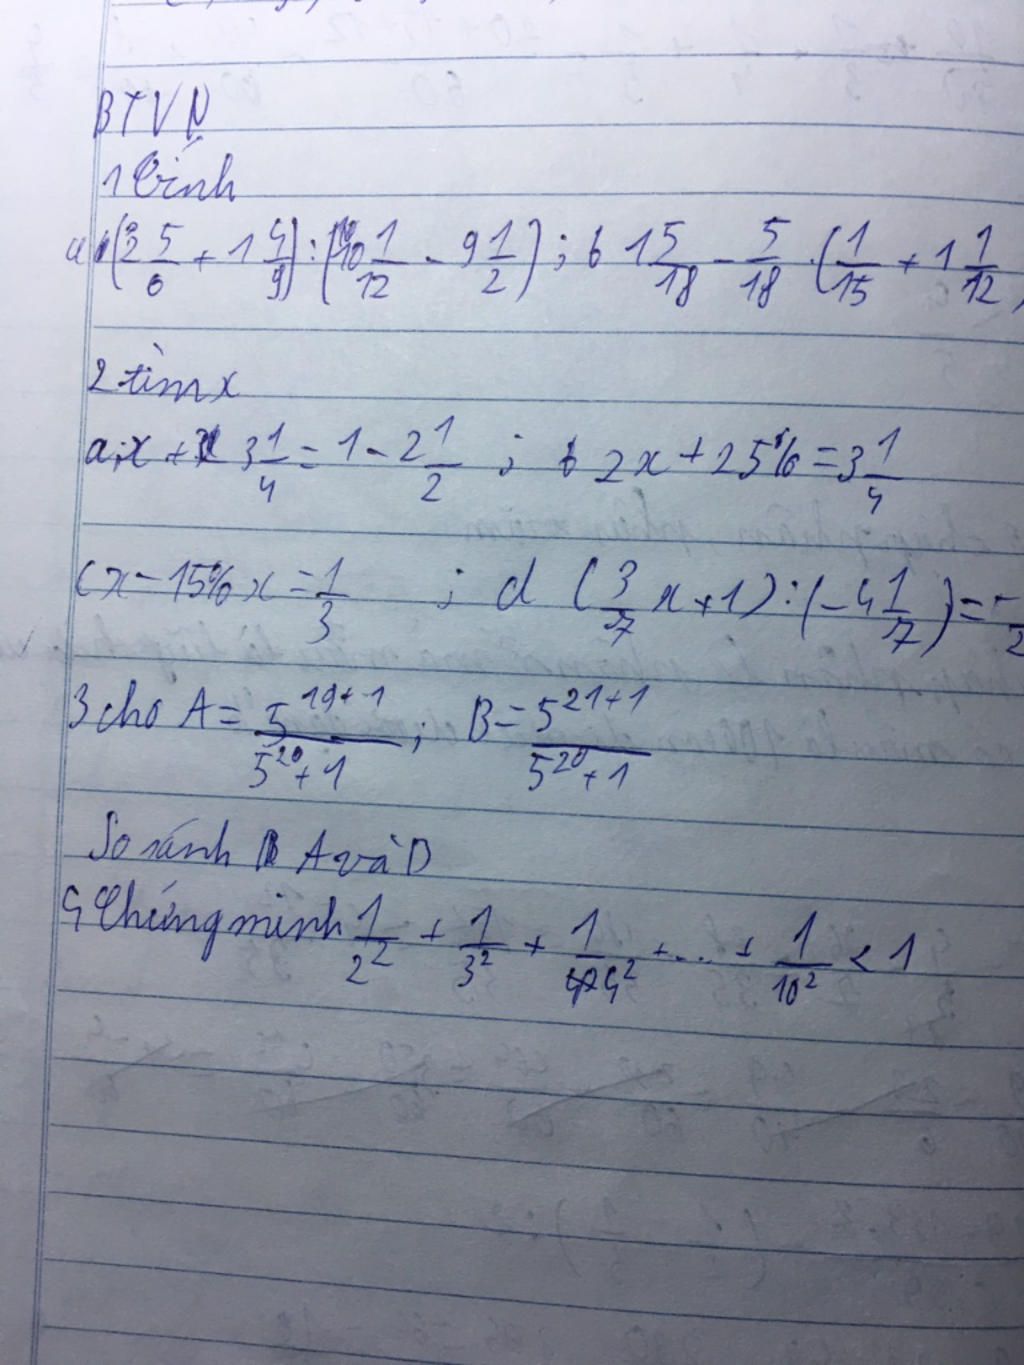 BTVN
1 Tính
a (3 5/6 + 1 4/9) : (10 1/12 - 9 1/2) ; b 1 5/18 - 5/18 . (1/15 + 1 1/12)
2 tìm x
a, x + 3 1/4 = 1 - 2 1/2 ; b 2x + 25% = 3 1/4
c x - 15% x = 1/3 ; d (3/7 x + 1) : (-4 1/7) =
3 cho A = 5^19+1 / 5^20+1 ; B = 5^21+1 / 5^20+1
So sánh A và B
4 Chứng minh 1/2² + 1/3² + 1/4² + ... + 1/10² < 1